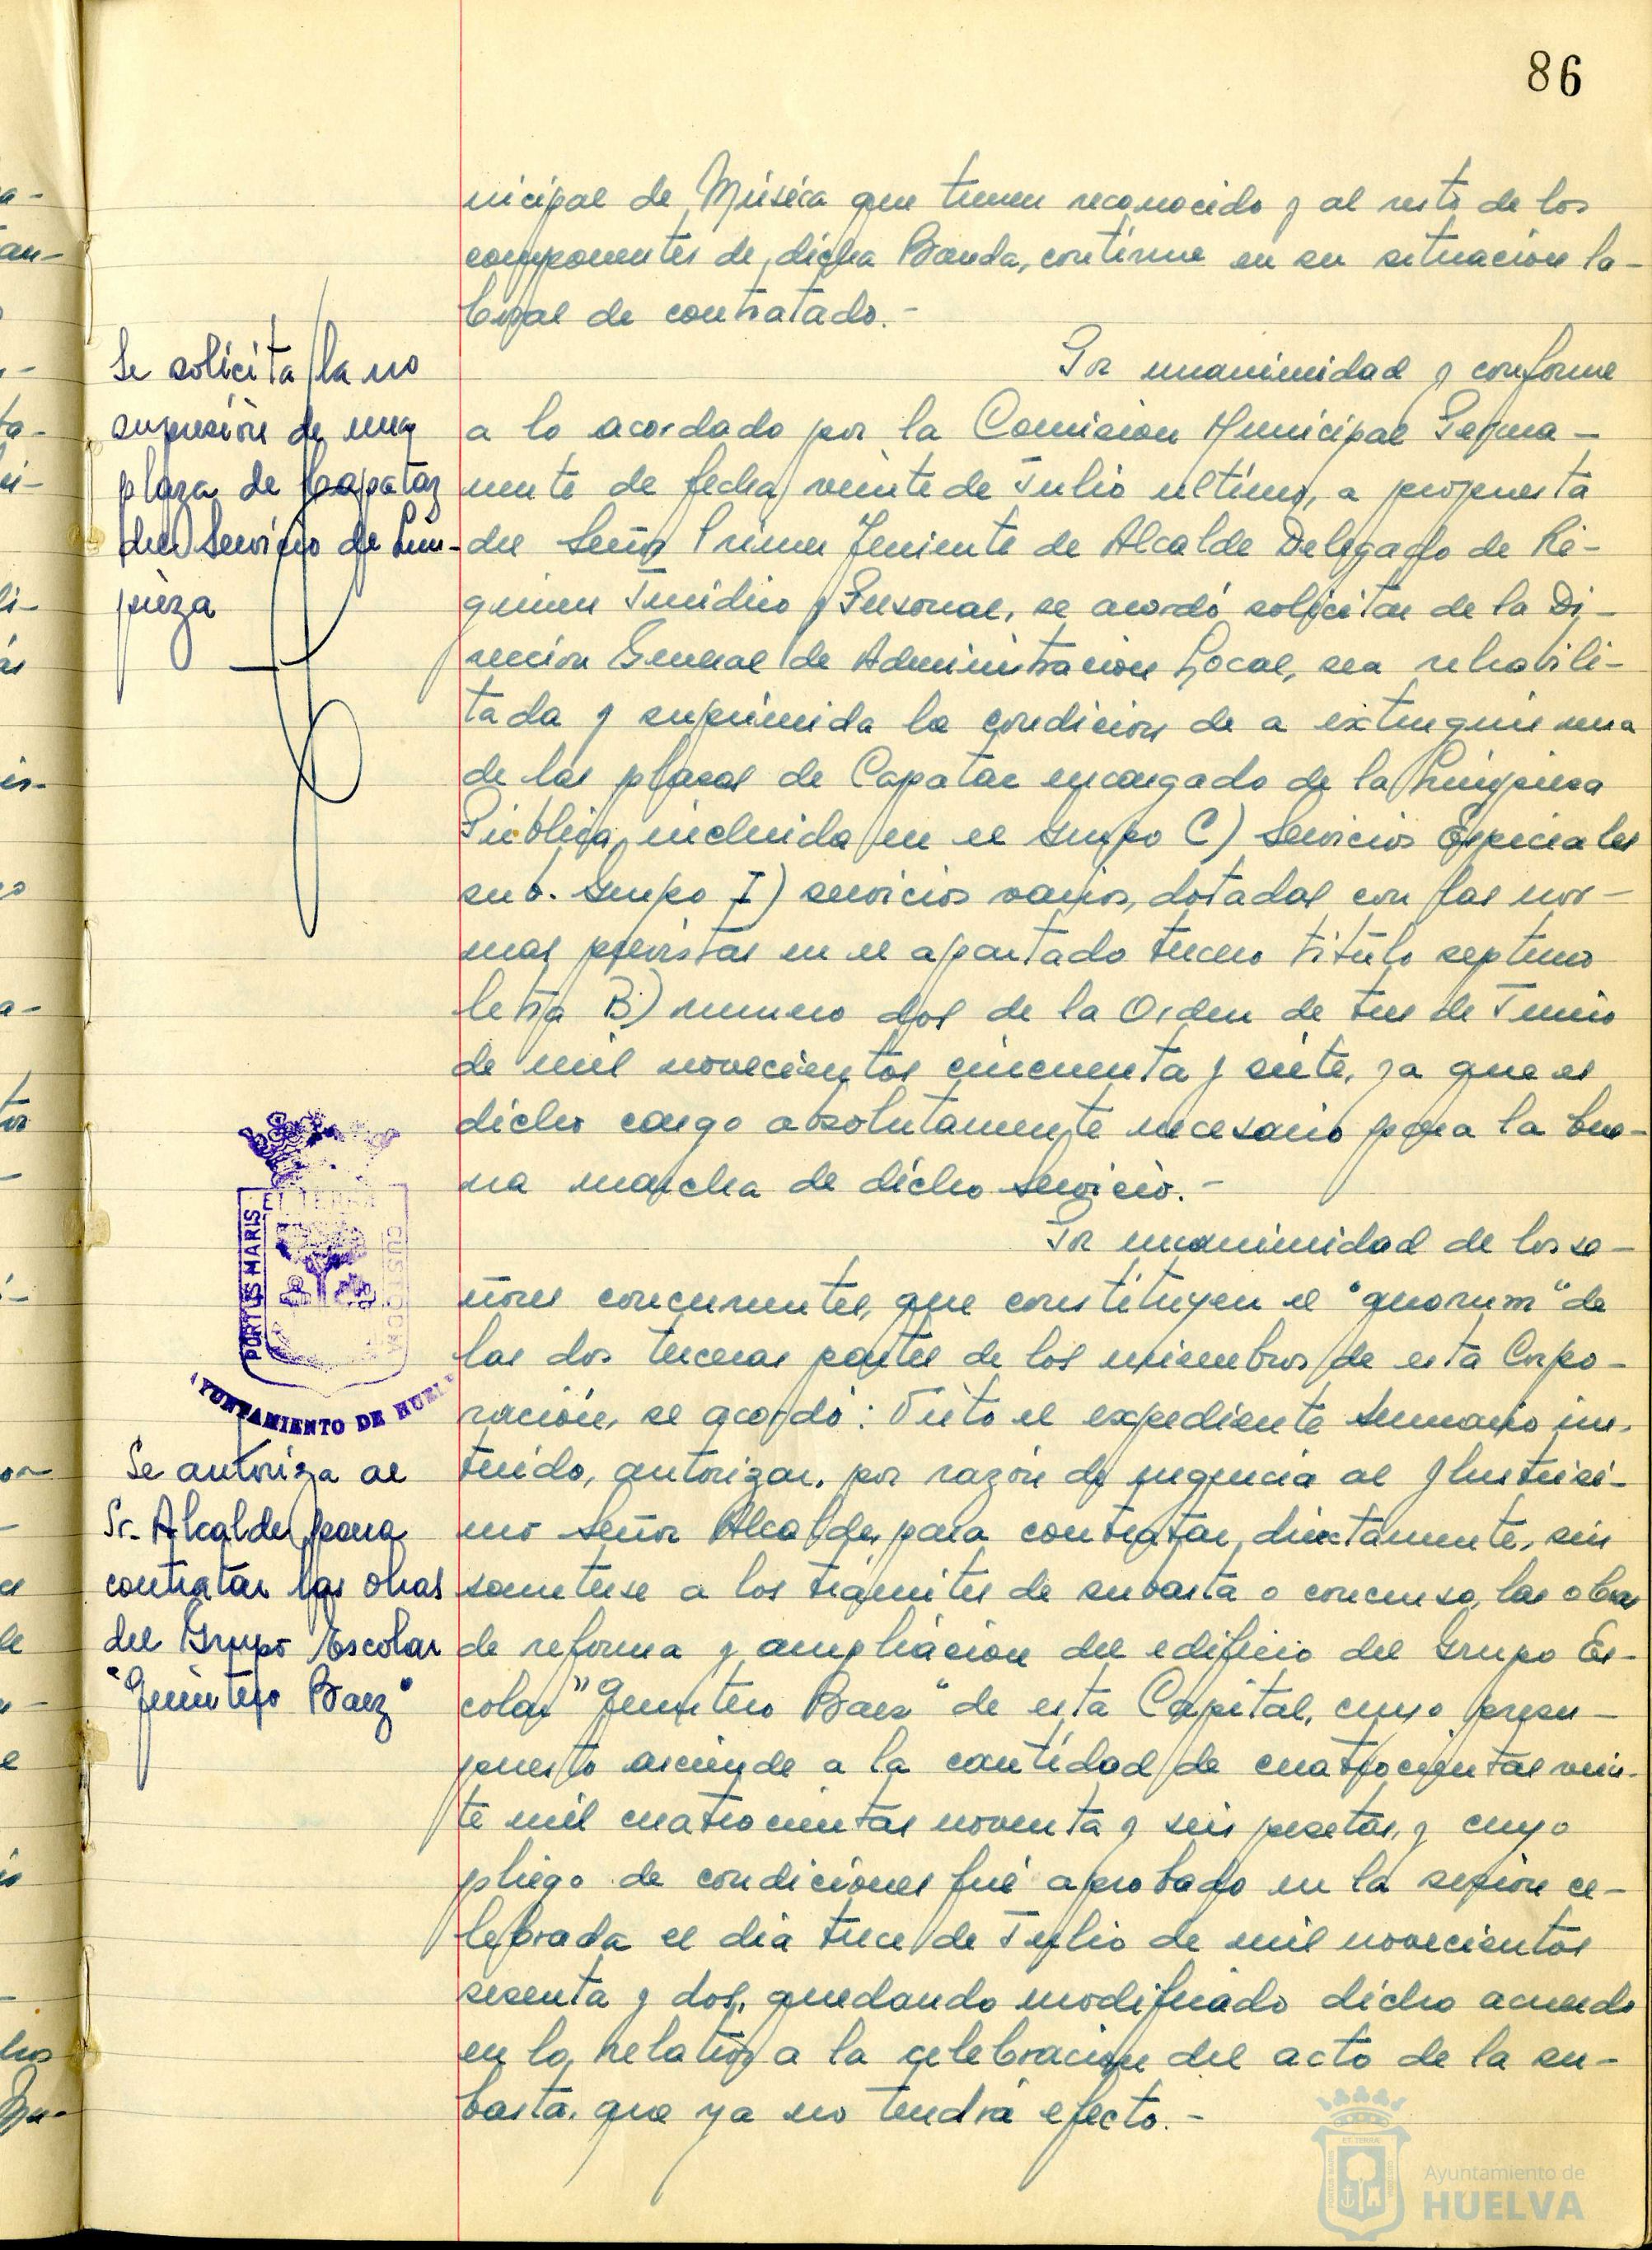 86
nicipal de Música que tienen reconocido y al resto de los
componentes de dicha Banda, continue en su situacion la-
boral de contratado.-
Se solicita la no
supresión de una
plaza de Capataz
del Servicio de Lim-
pieza
Por unanimidad y conforme
a lo acordado por la Comision Municipal Perma-
nente de fecha veinte de Julio ultimo, a propuesta
del Señor Primer Teniente de Alcalde Delegado de Ré-
gimen Juridico y Personal, se acordó solicitar de la Di-
reccion General de Administracion Local, sea rehabili-
tada y suprimida la condicion de a extinguir una
de las plazas de Capataz encargado de la Limpieza
Pública, incluida en el Grupo C) Servicios Especiales
sub. Grupo I) servicios varios, dotadas con las nor-
mas previstas en el apartado tercero titulo septimo
letra B) numero dos de la Orden de tres de Junio
de mil novecientos cincuenta y siete, ya que es
dicho cargo absolutamente necesario para la bue-
na marcha de dicho servicio.-
PORTUS MARIS
ET TERRA
CUSTODIA
AYUNTAMIENTO DE HUELVA
Por unanimidad de los se-
ñores concurrentes, que constituyen el "quorum" de
las dos terceras partes de los miembros de esta Corpo-
ración, se acordó: Visto el expediente sumario ins-
truido, autorizar, por razón de urgencia al Ilustrisi-
mo Señor Alcalde, para contratar, directamente, sin
someterse a los trámites de subasta o concurso, las obras
de reforma y ampliacion del edificio del Grupo Es-
colar "Quintero Baez" de esta Capital, cuyo presu-
puesto asciende a la cantidad de cuatrocientas vein-
te mil cuatrocientas noventa y seis pesetas, y cuyo
pliego de condiciones fué aprobado en la sesión ce-
lebrada el dia trece de Julio de mil novecientos
sesenta y dos, quedando modificado dicho acuerdo
en lo relativo a la celebracion del acto de la su-
basta, que ya no tendrá efecto.-
Se autoriza al
Sr. Alcalde para
contratar las obras
del Grupo Escolar
"Quintero Baez"
Ayuntamiento de
HUELVA